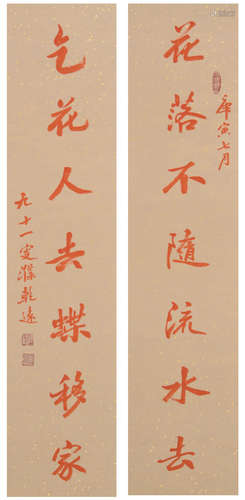 花落不隨流水去
庚寅七月
乞花人去蝶移家
九十一叟
乾遠